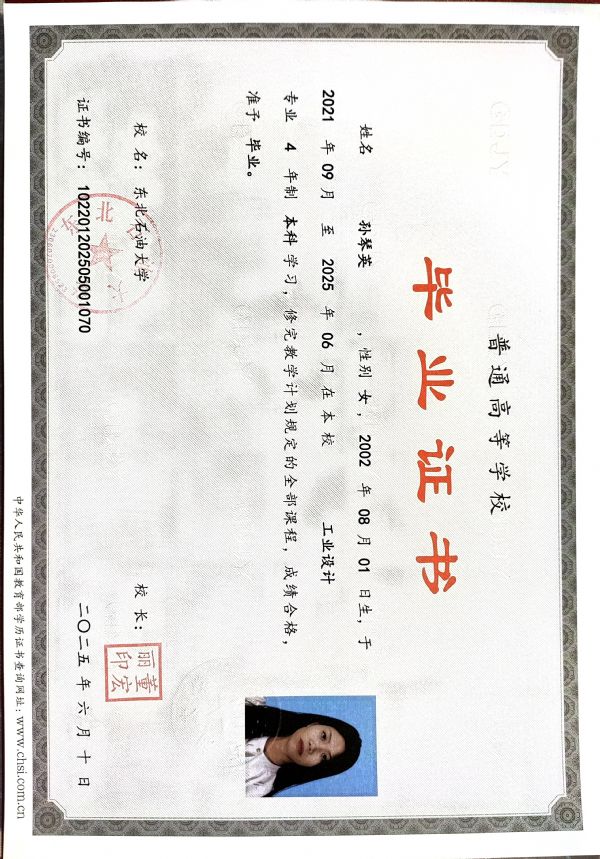 普通高等学校
毕业证书
姓名 孙琴英 ，性别 女，2002 年 08 月 01 日生，于
2021 年 09 月 至 2025 年 06 月在本校 工业设计
专业 4 年制 本科 学习，修完教学计划规定的全部课程，成绩合格，
准予 毕业。
校 名：东北石油大学 校 长：
董宏丽印
证书编号：102201202505001070 二〇二五 年 六 月 十 日
中华人民共和国教育部学历证书查询网址：www.chsi.com.cn